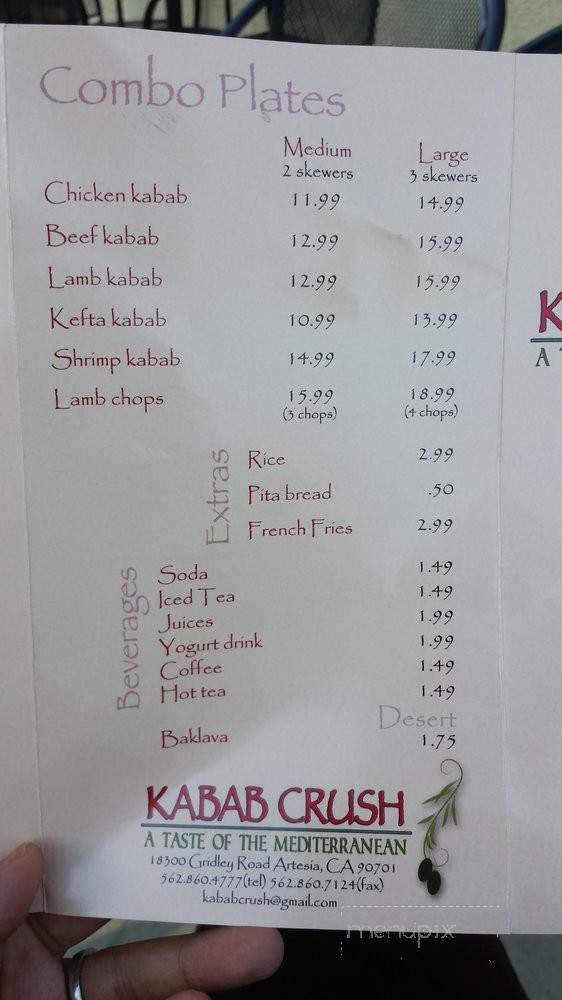 Combo Plates
Medium Large
2 skewers 3 skewers
Chicken kabab 11.99 14.99
Beef kabab 12.99 15.99
Lamb kabab 12.99 15.99
Kefta kabab 10.99 13.99
Shrimp kabab 14.99 17.99
Lamb chops 15.99 18.99
(3 chops) (4 chops)
Extras
Rice 2.99
Pita bread .50
French Fries 2.99
Beverages
Soda 1.49
Iced Tea 1.49
Juices 1.99
Yogurt drink 1.99
Coffee 1.49
Hot tea 1.49
Desert
Baklava 1.75
KABAB CRUSH
A TASTE OF THE MEDITERRANEAN
18300 Gridley Road Artesia, CA 90701
562.860.4777(tel) 562.860.7124(fax)
kababcrush@gmail.com
menupix
K
A